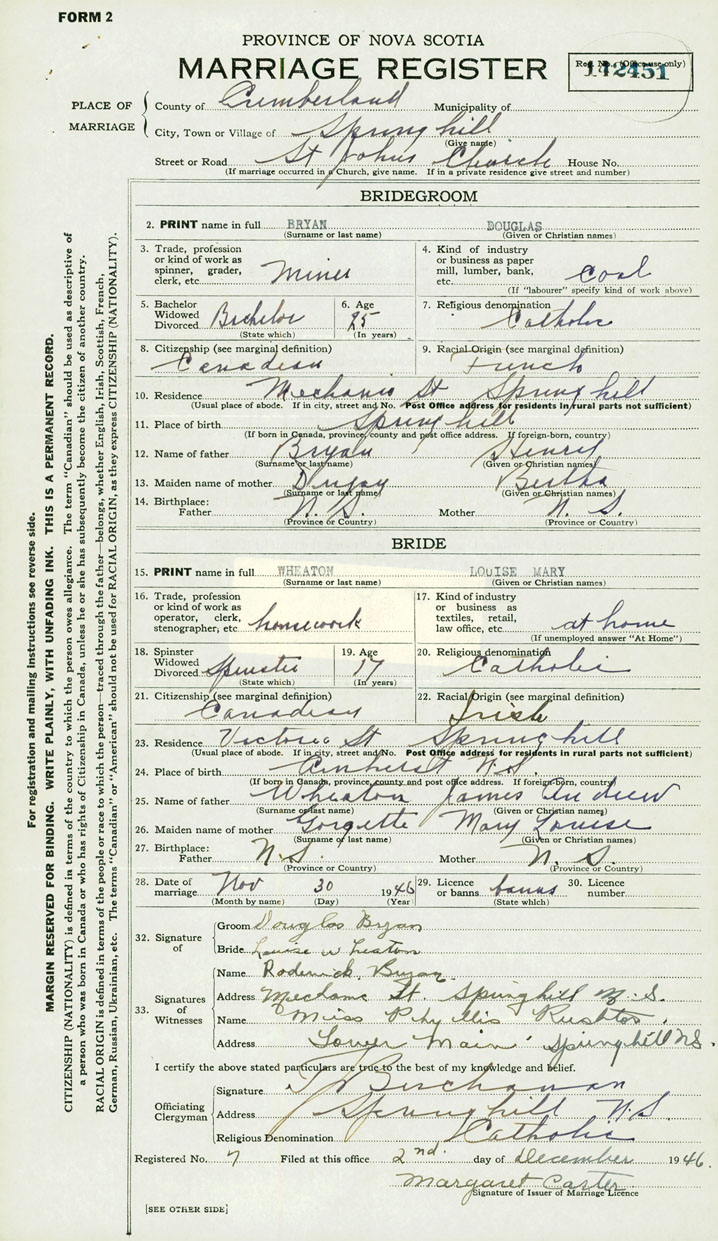 FORM 2
PROVINCE OF NOVA SCOTIA
MARRIAGE REGISTER
Reg. No. (Office use only)
142451
PLACE OF MARRIAGE
County of Cumberland Municipality of
City, Town or Village of Springhill
(Give name)
Street or Road St Johns Church House No.
(If marriage occurred in a Church, give name. If in a private residence give street and number)
BRIDEGROOM
2. PRINT name in full BRYAN DOUGLAS
(Surname or last name) (Given or Christian names)
3. Trade, profession or kind of work as spinner, grader, clerk, etc. Miner
4. Kind of industry or business as paper mill, lumber, bank, etc. Coal
(If "labourer" specify kind of work above)
5. Bachelor Widowed Divorced Bachelor
(State which)
6. Age 25
(In years)
7. Religious denomination Catholic
8. Citizenship (see marginal definition) Canadian
9. Racial Origin (see marginal definition) French
10. Residence Mechanic St Springhill
(Usual place of abode. If in city, street and No. Post Office address for residents in rural parts not sufficient)
11. Place of birth Springhill
(If born in Canada, province, county and post office address. If foreign-born, country)
12. Name of father Bryan Henry
(Surname or last name) (Given or Christian names)
13. Maiden name of mother Dugay Bertha
(Surname or last name) (Given or Christian names)
14. Birthplace: Father N. S. Mother N. S.
(Province or Country) (Province or Country)
BRIDE
15. PRINT name in full WHEATON LOUISE MARY
(Surname or last name) (Given or Christian names)
16. Trade, profession or kind of work as operator, clerk, stenographer, etc. housework
17. Kind of industry or business as textiles, retail, law office, etc. at home
(If unemployed answer "At Home")
18. Spinster Widowed Divorced Spinster
(State which)
19. Age 17
(In years)
20. Religious denomination Catholic
21. Citizenship (see marginal definition) Canadian
22. Racial Origin (see marginal definition) Irish
23. Residence Victoria St Springhill
(Usual place of abode. If in city, street and No. Post Office address for residents in rural parts not sufficient)
24. Place of birth Amherst N.S.
(If born in Canada, province, county and post office address. If foreign-born, country)
25. Name of father Wheaton James Andrew
(Surname or last name) (Given or Christian names)
26. Maiden name of mother Gorgette Mary Louise
(Surname or last name) (Given or Christian names)
27. Birthplace: Father N.S. Mother N. S.
(Province or Country) (Province or Country)
28. Date of marriage Nov 30 1946
(Month by name) (Day) (Year)
29. Licence or banns banns
(State which)
30. Licence number
32. Signature of
Groom Douglas Bryan
Bride Louise Wheaton
33. Signatures of Witnesses
Name Roderick Bryan
Address Mechanic St. Springhill N.S.
Name Miss Phyllis Rushton
Address Lower Main Springhill NS.
I certify the above stated particulars are true to the best of my knowledge and belief.
Officiating Clergyman
Signature J Buchanan
Address Springhill N.S.
Religious Denomination Catholic
Registered No. 7 Filed at this office 2nd. day of December 1946.
Margaret Carter
Signature of Issuer of Marriage Licence
[SEE OTHER SIDE]
For registration and mailing instructions see reverse side.
MARGIN RESERVED FOR BINDING. WRITE PLAINLY, WITH UNFADING INK. THIS IS A PERMANENT RECORD.
CITIZENSHIP (NATIONALITY) is defined in terms of the country to which the person owes allegiance. The term "Canadian" should be used as descriptive of
a person who was born in Canada or who has rights of Citizenship in Canada, unless he or she has subsequently become the citizen of another country.
RACIAL ORIGIN is defined in terms of the people or race to which the person—traced through the father—belongs, whether English, Irish, Scottish, French,
German, Russian, Ukrainian, etc. The terms "Canadian" or "American" should not be used for RACIAL ORIGIN, as they express CITIZENSHIP (NATIONALITY).